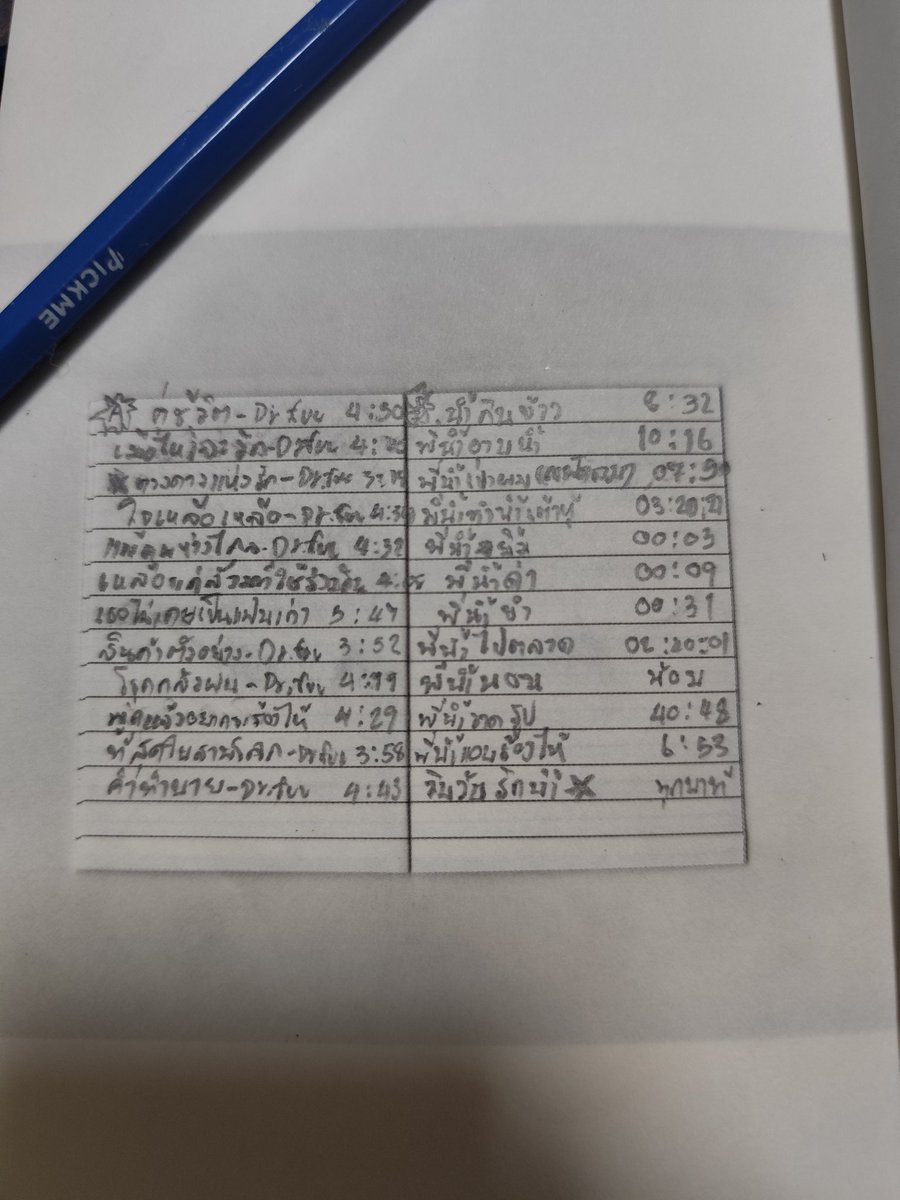 PICKME
คู่ชีวิต-Dr.fuu 4:30
-Dr.fuu
ดวงดาวแห่งรัก-Dr.fuu
ใจเหลือเหลือ-Dr.fuu
-Dr.fuu 4:32
เธอไม่เคยเป็นแฟนเก่า 3:47
สินค้าตัวอย่าง-Dr.fuu 3:52
โรคกลัวฝน-Dr.fuu 4:19
พูดแล้วอยากจะร้องไห้ 4:29
ที่สุดในสามโลก-Dr.fuu 3:58
คำทำนาย-Dr.fuu 4:43
น้ำกินข้าว 8:32
พี่น้ำอาบน้ำ 10:16
พี่น้ำเป่าผม
พี่น้ำทำน้ำเต้าหู้
พี่น้ำยิ้ม 00:03
พี่น้ำด่า 00:09
พี่น้ำขำ 00:31
พี่น้ำไปตลาด 02:20:01
พี่น้ำนอน น้อย
พี่น้ำวาดรูป 40:48
พี่น้ำแอบร้องไห้ 6:53
วินวันรักน้ำ ทุกนาที